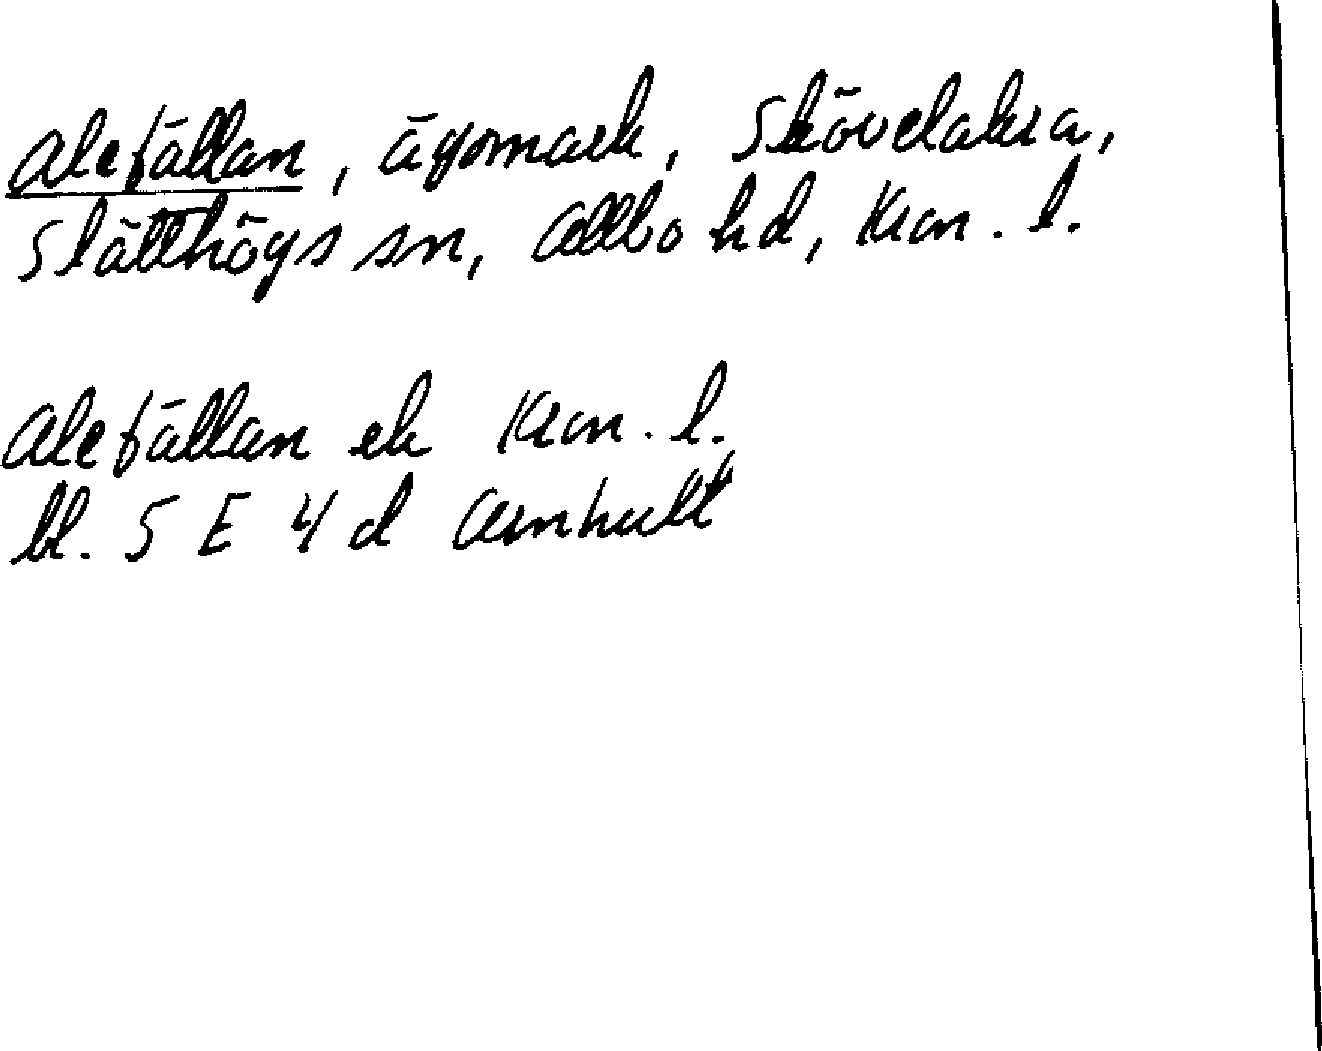 Alefällan, ägomark, Skövelakra,
Slätthögs sn, Allbo hd, Kron. l.
Alefällan ek Kron. l.
bl. 5 E 4 d Arnhult